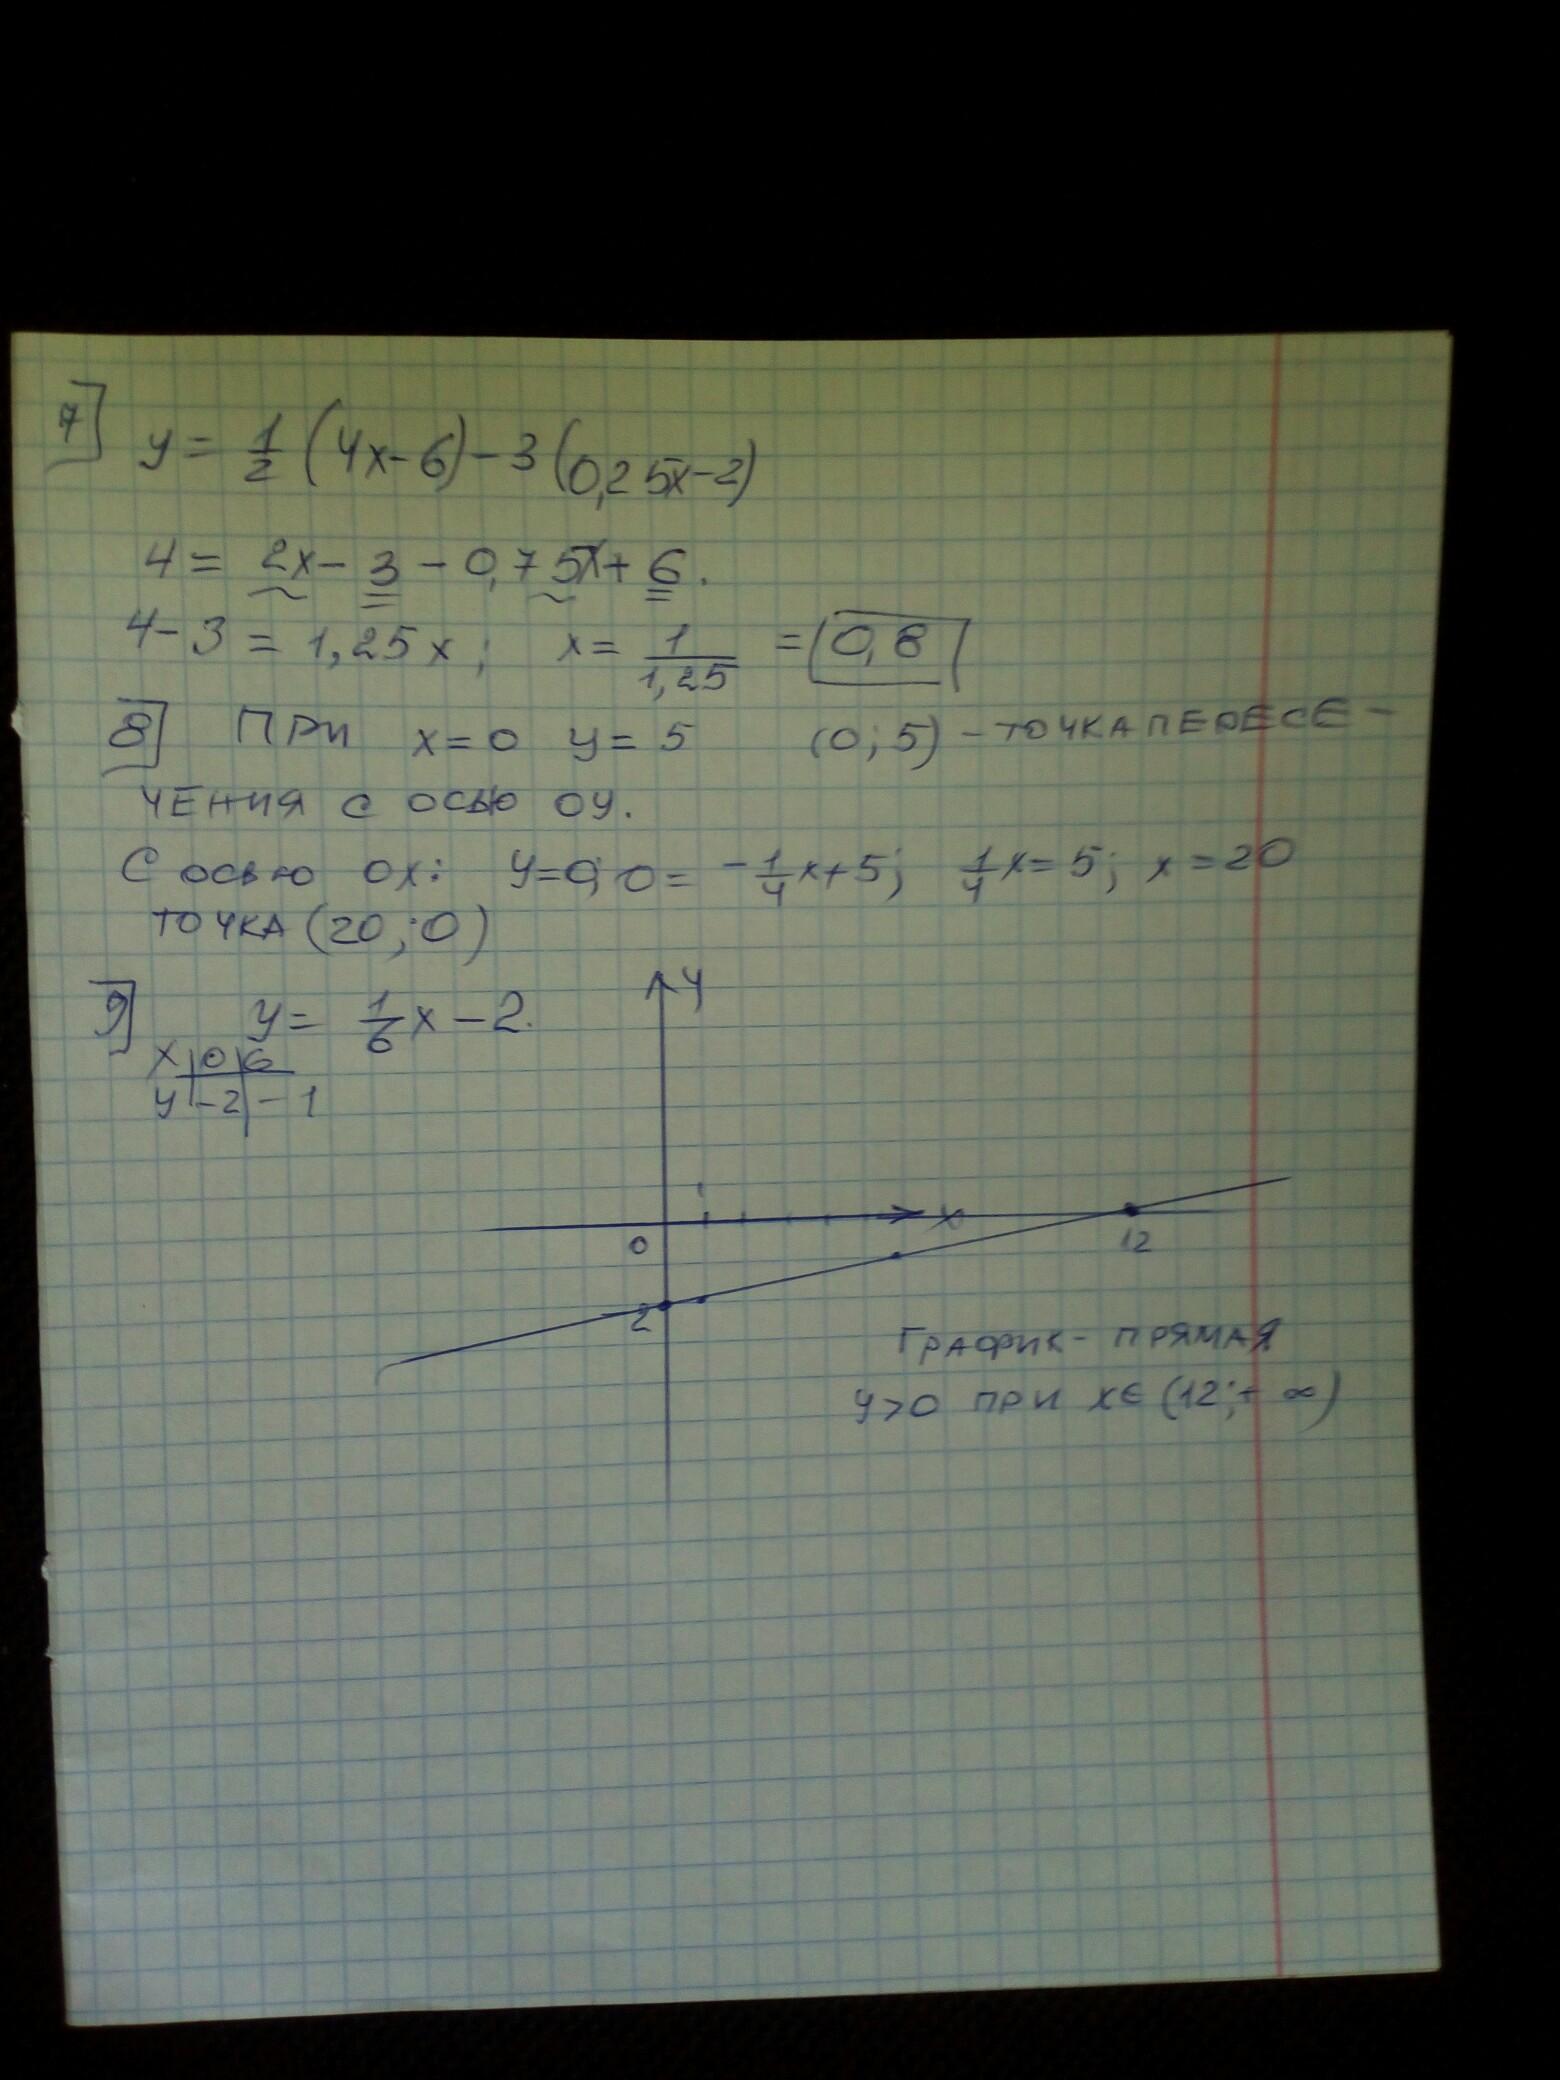 7] y = 1/2 (4x-6) - 3 (0,25x-2)
4 = 2x - 3 - 0,75x + 6.
4-3 = 1,25x; x = 1/1,25 = 0,8
8] ПРИ x=0 y=5 (0;5) - ТОЧКА ПЕРЕСЕ-
ЧЕНИЯ С ОСЬЮ ОУ.
С осью ОХ: y=0; 0= -1/4x+5; 1/4x=5; x=20
ТОЧКА (20;0)
9] y= 1/6x-2.
x | 0 | 6
y | -2 | -1
y
x
0
12
2
ГРАФИК - ПРЯМАЯ
y>0 ПРИ x∈(12;+∞)